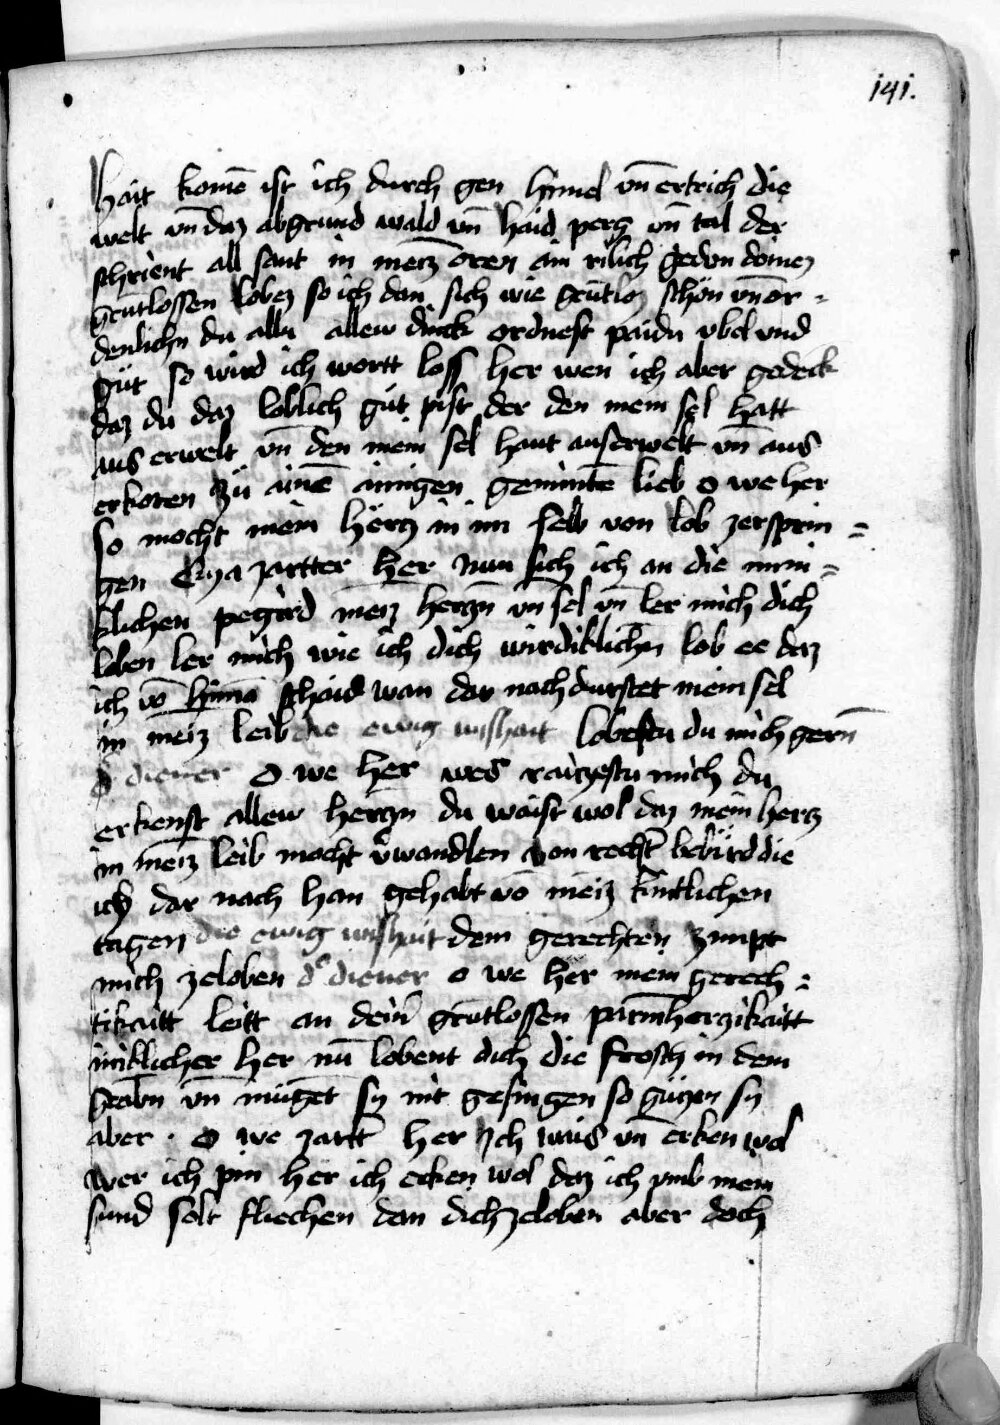 141.
hait komē ist ich durch gen himel vn̄ ertrich die
welt vn̄ daz abgrund wald vn̄ haid perg vn̄ tal der
schrient all sant in meiz oren ain rilich gedon deinez
grūtlossen lobez so ich dan sich wie grūtloz schon vn̄ or=
denlichn du allu allew dinck ordnest paidu vbel vnd
güt so wird ich wortt loss her wen ich aber gedeck
daz du daz loblich güt pist der den mein sel hatt
aus erwelt vn̄ den mein sel haut auserwelt vn̄ aus
erkoren zü ainē ainigen geminte lieb o we her
so mocht mein hertz in im selb von lob zersprin=
gen Eya zartter her nun sich ich an die mini=
klichen pegird meiz herczn vn̄ sel vn̄ ler mich dich
loben ler mich wie ich dich wirdiklichn lob ee daz
ich vō hinnā schaid wan dar nach durstet mein sel
in meiz leib die ewig wishait lobestu du mich gern̄
d diener O we her wes raiczestu mich du
erkenst allew herczn du waist wol daz mein hertz
in meiz leib mocht v̄wandlen von rechtr begird die
ich dar nach han gehabt vō meiz kintlichen
tagen die ewig wishait dem gerechten zimpt
mich zeloben d diener o we her mein gerech=
tikaitt leitt an deinr grūtlossen parmherzikaitt
miklicher her nū lobent dich die frosch in dem
grabn vn̄ müget sy nit gesingen so güzen sy
aber · o we zartr her Ich wais vn̄ erken wol
wer ich pin her ich erken wol daz ich vmb mein
sund solt fliechen dan dich zeloben aber doch